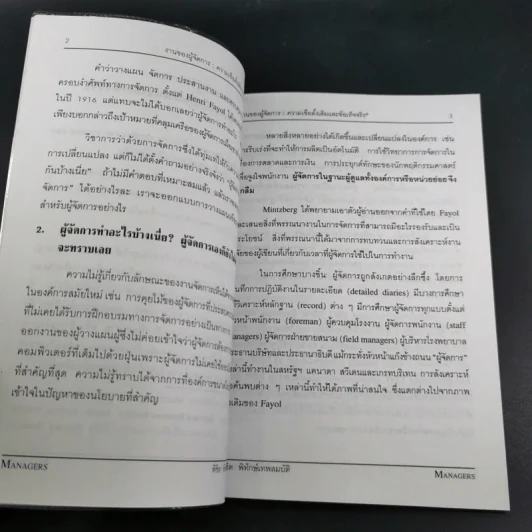 2
งานของผู้จัดการ : ความเชื่อดั้งเดิม
คำว่าวางแผน จัดการ ประสานงาน และ
ครอบงำศัพท์ทางการจัดการ ตั้งแต่ Henri Fayol
ในปี 1916 แต่แทบจะไม่ได้บอกเลยว่าผู้จัดการทำ
เพียงบอกกล่าวถึงเป้าหมายที่คลุมเครือของผู้จัดการ
วิชาการว่าด้วยการจัดการ ซึ่งได้ทุ่มเทให้กับ
การเปลี่ยนแปลง แต่ก็ไม่ได้ตั้งคำถามอย่างจริงจังว่า
กันบ้างเนี่ย" ถ้าไม่มีคำตอบที่เหมาะสมแล้ว แล้วเรา
จัดการ" ได้อย่างไรละ เราจะออกแบบการวางแผน
สำหรับผู้จัดการอย่างไร
2. ผู้จัดการทำอะไรบ้างเนี่ย? ผู้จัดการเองก็
จะทราบเลย
ความไม่รู้เกี่ยวกับลักษณะของงานจัดการ
ในองค์การสมัยใหม่ เช่น การคุยโม้ของผู้จัดการที่ประสบ
ที่ไม่เคยได้รับการฝึกอบรมทางการจัดการอย่างเป็นทาง
ออกงานของผู้วางแผนผู้ซึ่งไม่ค่อยเข้าใจว่าผู้จัดการต้อง
คอมพิวเตอร์ที่เต็มไปด้วยฝุ่นเพราะผู้จัดการไม่เคยใช้
ที่สำคัญที่สุด ความไม่รู้ทราบได้จากการที่องค์การ
เข้าใจในปัญหาของนโยบายที่สำคัญ
MANAGERS
พิทักษ์เทพสมบัติ
านของผู้จัดการ : ความเชื่อดั้งเดิมและข้อเท็จจริง*
3
หลายสิ่งหลายอย่างได้เกิดขึ้นและเปลี่ยนแปลงในองค์การ เช่น
ารรีบเร่งที่จะทำให้การผลิตเป็นอัตโนมัติ การใช้วิทยาการการจัดการใน
รื่องการตลาดและการเงิน การประยุกต์ทักษะของนักพฤติกรรมศาสตร์
เพื่อจูงใจพนักงาน ผู้จัดการในฐานะผู้ดูแลทั้งองค์การหรือหน่วยย่อย จึง
กลืม
Mintzberg ได้พยายามเอาตัวผู้อ่านออกจากคำที่ใช้โดย Fayol
ละเสนอสิ่งที่พรรณนางานในการจัดการที่สามารถมีอะไรรองรับและเป็น
ระโยชน์ สิ่งที่พรรณนานี้ได้มาจากการทบทวนและการสังเคราะห์งาน
จัยของผู้เขียนที่เกี่ยวกับเวลาที่ผู้จัดการใช้ไปในการทำงาน
ในการศึกษาบางชิ้น ผู้จัดการถูกสังเกตอย่างลึกซึ้ง โดยการ
ันทึกการปฏิบัติงานในรายละเอียด (detailed diaries) มีบางการศึกษา
วิเคราะห์หลักฐาน (record) ต่าง ๆ มีการศึกษาผู้จัดการทุกแบบตั้งแต่
หน้าพนักงาน (foreman) ผู้ควบคุมโรงงาน ผู้จัดการพนักงาน (staff
nanagers) ผู้จัดการฝ่ายขายสนาม (field managers) ผู้บริหารโรงพยาบาล
ระธานบริษัทและประธานาธิบดี แม้กระทั่งหัวหน้าแก๊งข้างถนน "ผู้จัดการ"
เหล่านี้ทำงานในสหรัฐฯ แคนาดา สวีเดนและเกรทบริเทน การสังเคราะห์
ค้นพบต่าง ๆ เหล่านี้ทำให้ได้ภาพที่น่าสนใจ ซึ่งแตกต่างไปจากภาพ
ดิมของ Fayol
MANAGERS